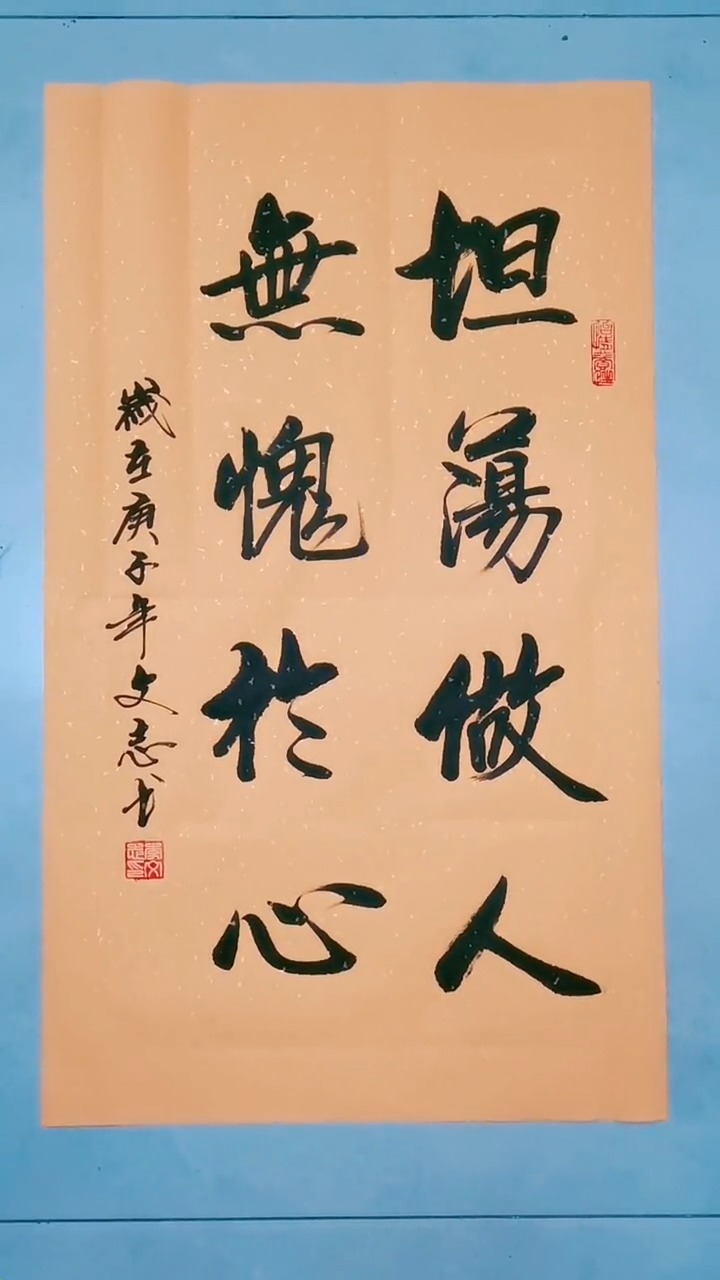 坦蕩做人
無愧於心
歲在庚子年文志书